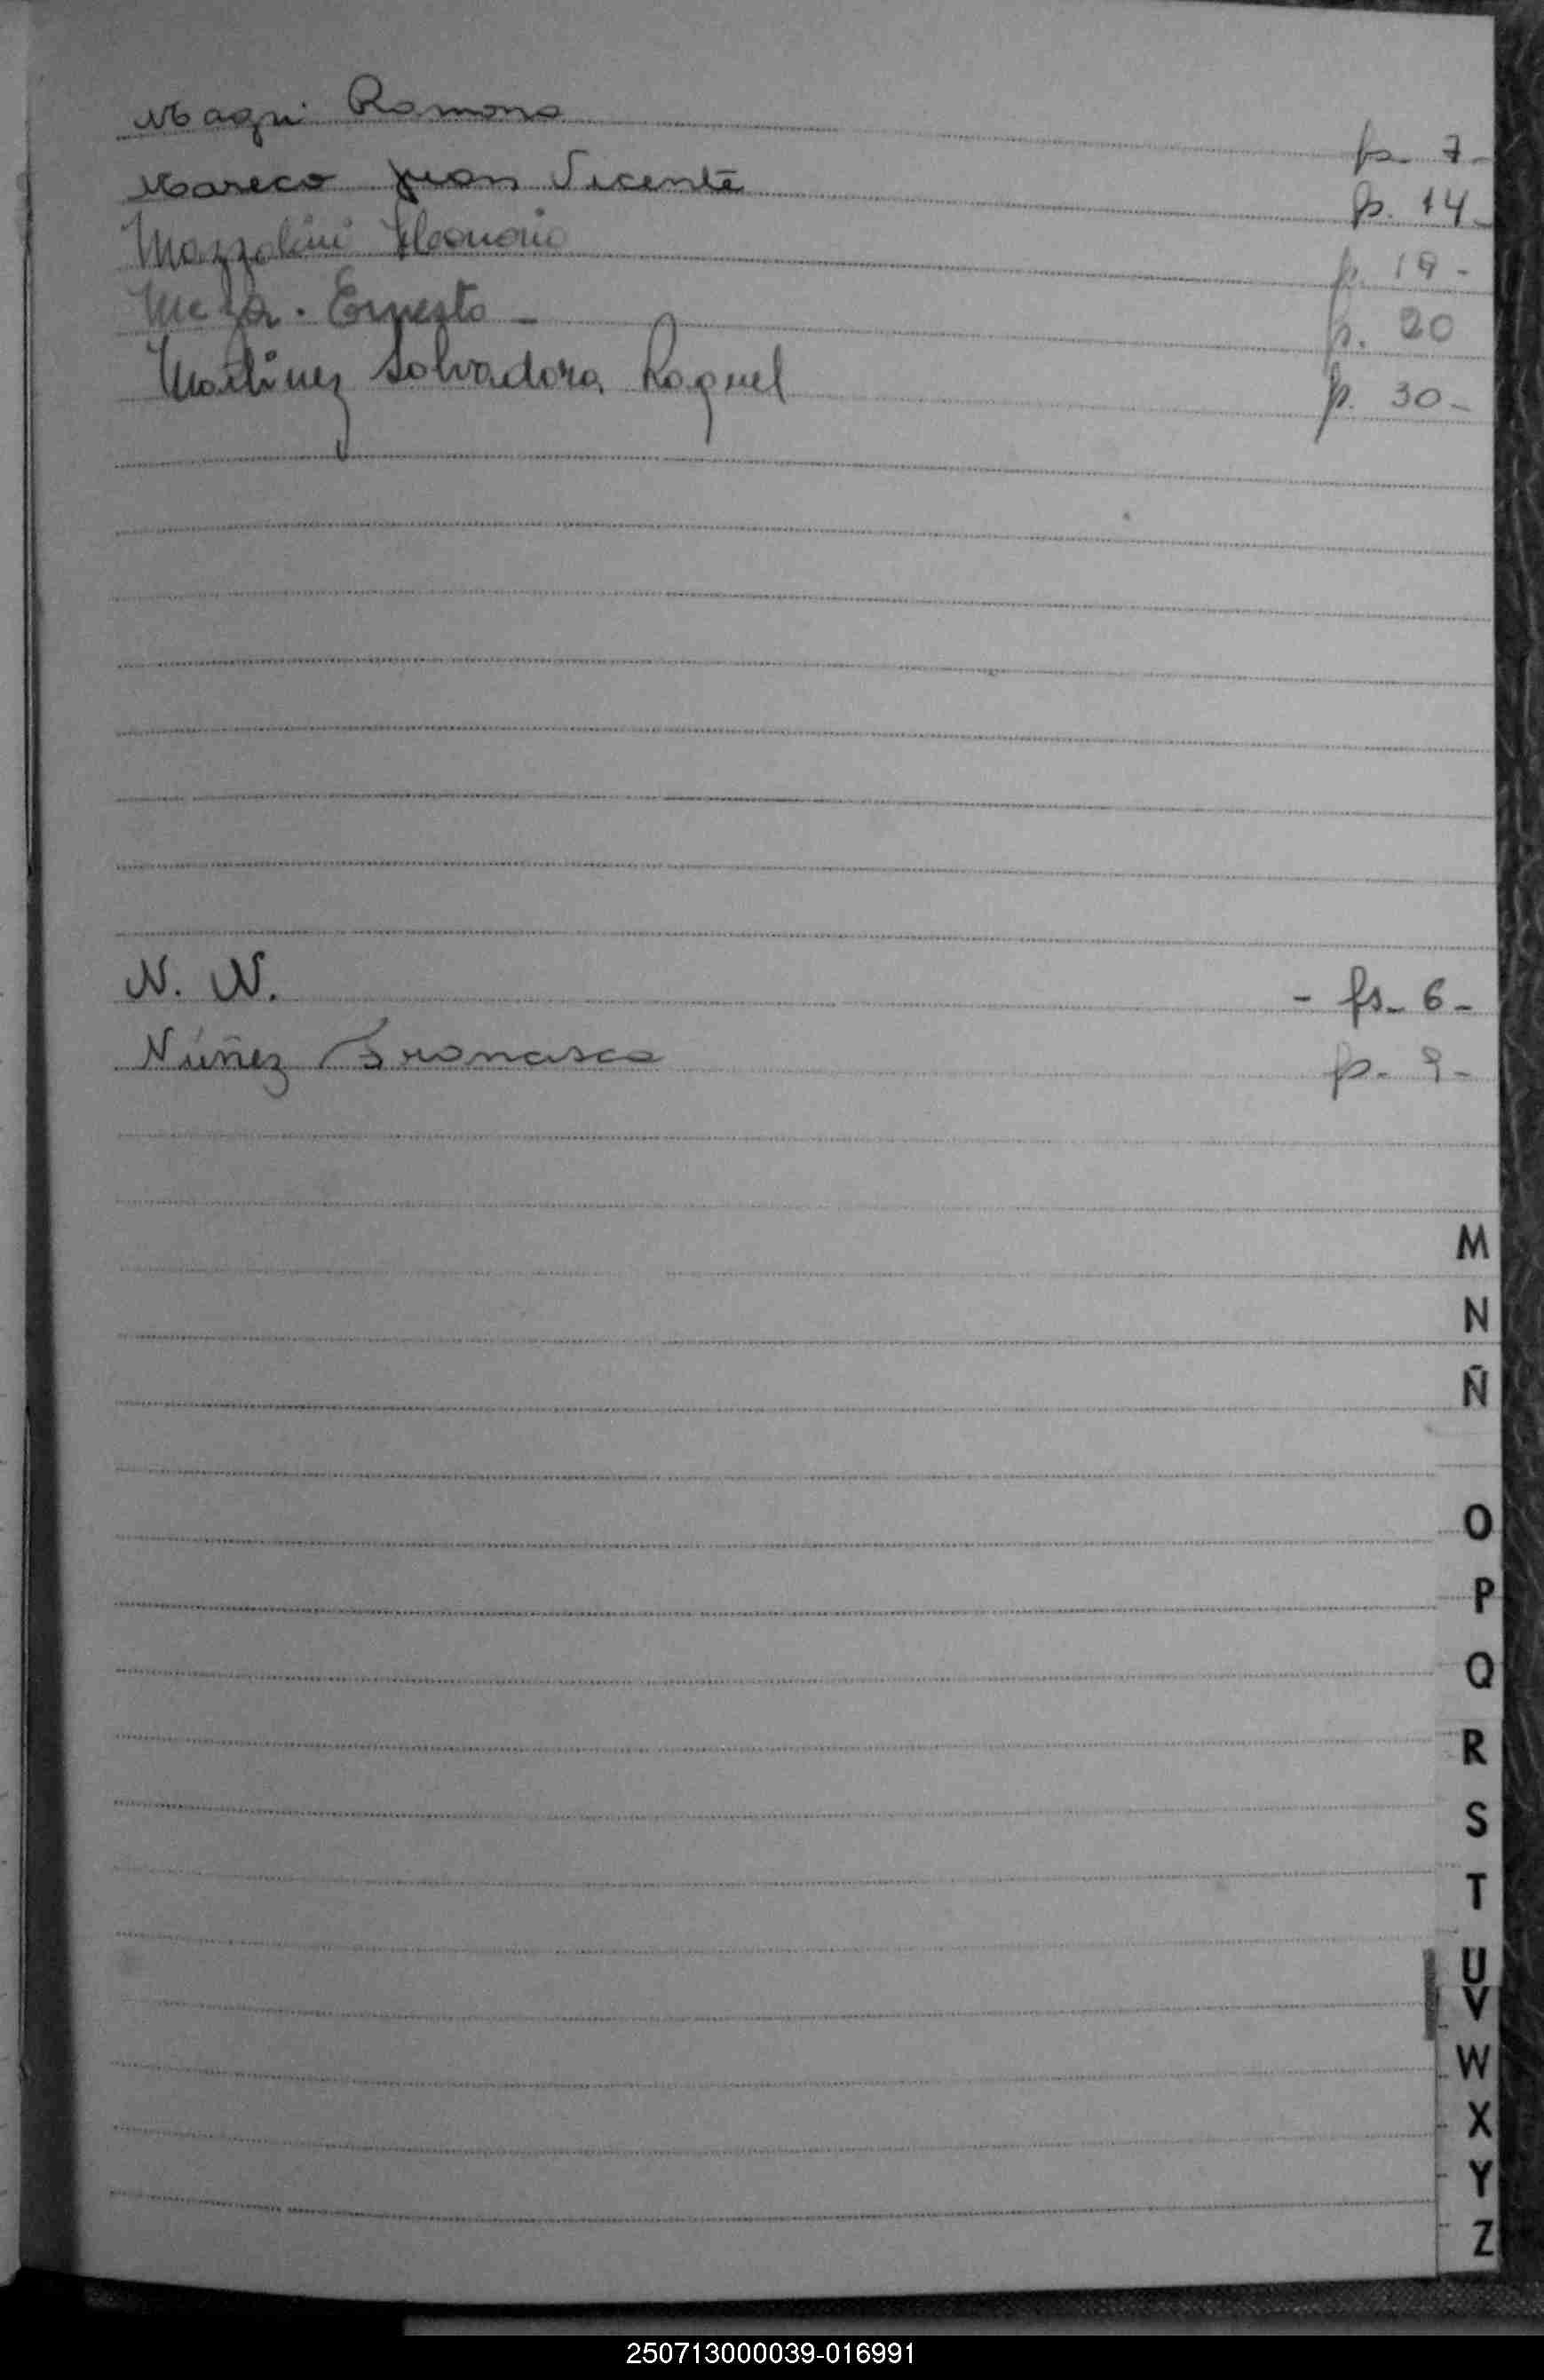 Magni Ramona fs. 7-
Mareco Juan Vicente fs. 14-
Mazzolini p. 19-
Meza. Ernesto - p. 20
Martinez Salvadora Raquel p. 30-
N. N. - fs. 6-
Núñez fs. 9-
M
N
Ñ
O
P
Q
R
S
T
U
V
W
X
Y
Z
250713000039-016991